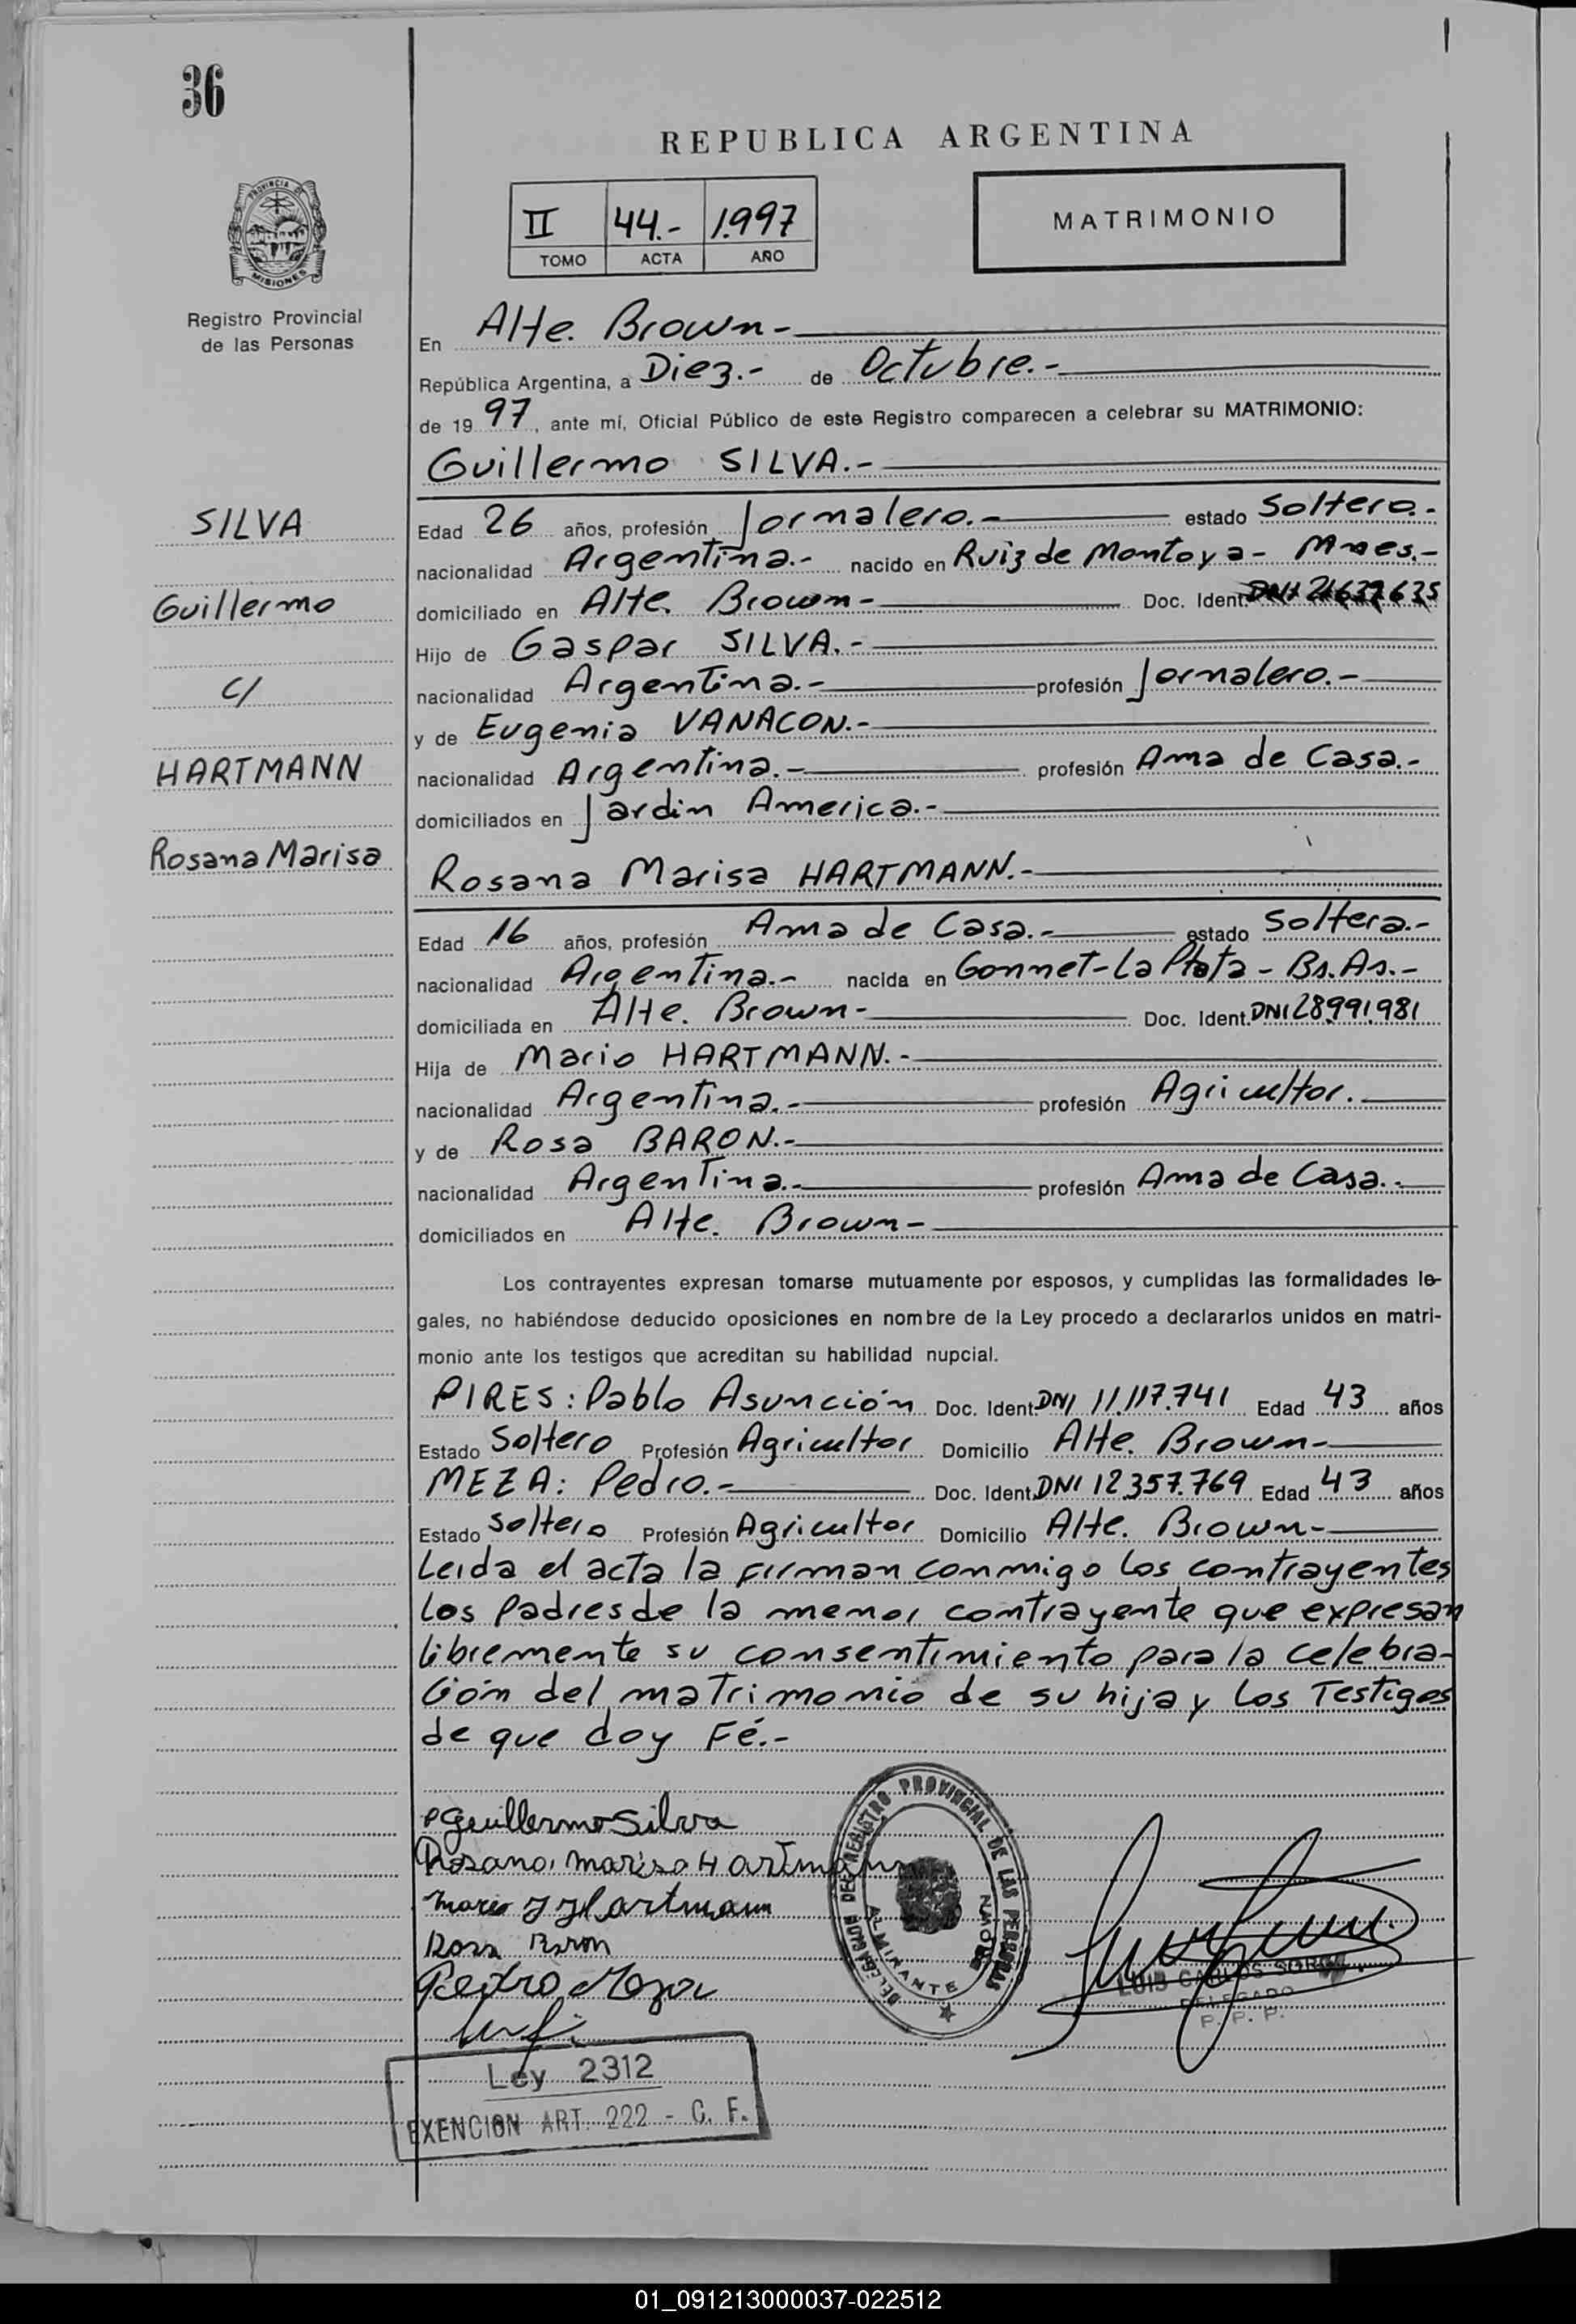 36
REPUBLICA ARGENTINA
II 44.- 1.997
TOMO ACTA AÑO
MATRIMONIO
PROVINCIA DE
MISIONES
Registro Provincial
de las Personas
En Alte. Brown-
República Argentina, a Diez.- de Octubre.-
de 19 97, ante mí, Oficial Público de este Registro comparecen a celebrar su MATRIMONIO:
Guillermo SILVA.-
SILVA
Guillermo
c/
HARTMANN
Rosana Marisa
Edad 26 años, profesión Jornalero.- estado Soltero.-
nacionalidad Argentina.- nacido en Ruiz de Montoya- Mnes.-
domiciliado en Alte. Brown- Doc. Ident.
Hijo de Gaspar SILVA.-
nacionalidad Argentina.- profesión Jornalero.-
y de Eugenia VANACON.-
nacionalidad Argentina.- profesión Ama de Casa.-
domiciliados en Jardin America.-
Rosana Marisa HARTMANN.-
Edad 16 años, profesión Ama de Casa.- estado Soltera.-
nacionalidad Argentina.- nacida en Gonnet-La Plata- Bs.As.-
domiciliada en Alte. Brown- Doc. Ident. DNI 28.991.981
Hija de Mario HARTMANN.-
nacionalidad Argentina.- profesión Agricultor.
y de Rosa BARON.-
nacionalidad Argentina.- profesión Ama de Casa.-
domiciliados en Alte. Brown-
Los contrayentes expresan tomarse mutuamente por esposos, y cumplidas las formalidades le-
gales, no habiéndose deducido oposiciones en nombre de la Ley procedo a declararlos unidos en matri-
monio ante los testigos que acreditan su habilidad nupcial.
PIRES: Pablo Asunción Doc. Ident. DNI 11.117.741 Edad 43 años
Estado Soltero Profesión Agricultor Domicilio Alte. Brown-
MEZA: Pedro.- Doc. Ident. DNI 12.357.769 Edad 43 años
Estado Soltero Profesión Agricultor Domicilio Alte. Brown-
Leida el acta la firman conmigo los contrayentes
los padres de la menor contrayente que expresan
libremente su consentimiento para la celebra-
ción del matrimonio de su hija y los Testigos
de que doy Fé.-
Guillermo Silva
Rosana marisa Hartmann
Mario Hartmann
Rosa Baron
Pedro Meza
DELEGACION DEL REGISTRO PROVINCIAL DE LAS PERSONAS
ALMIRANTE BROWN
LUIS CARLOS
DELEGADO
P. P. P.
Ley 2312
EXENCION ART. 222 - C. F.
01_091213000037-022512